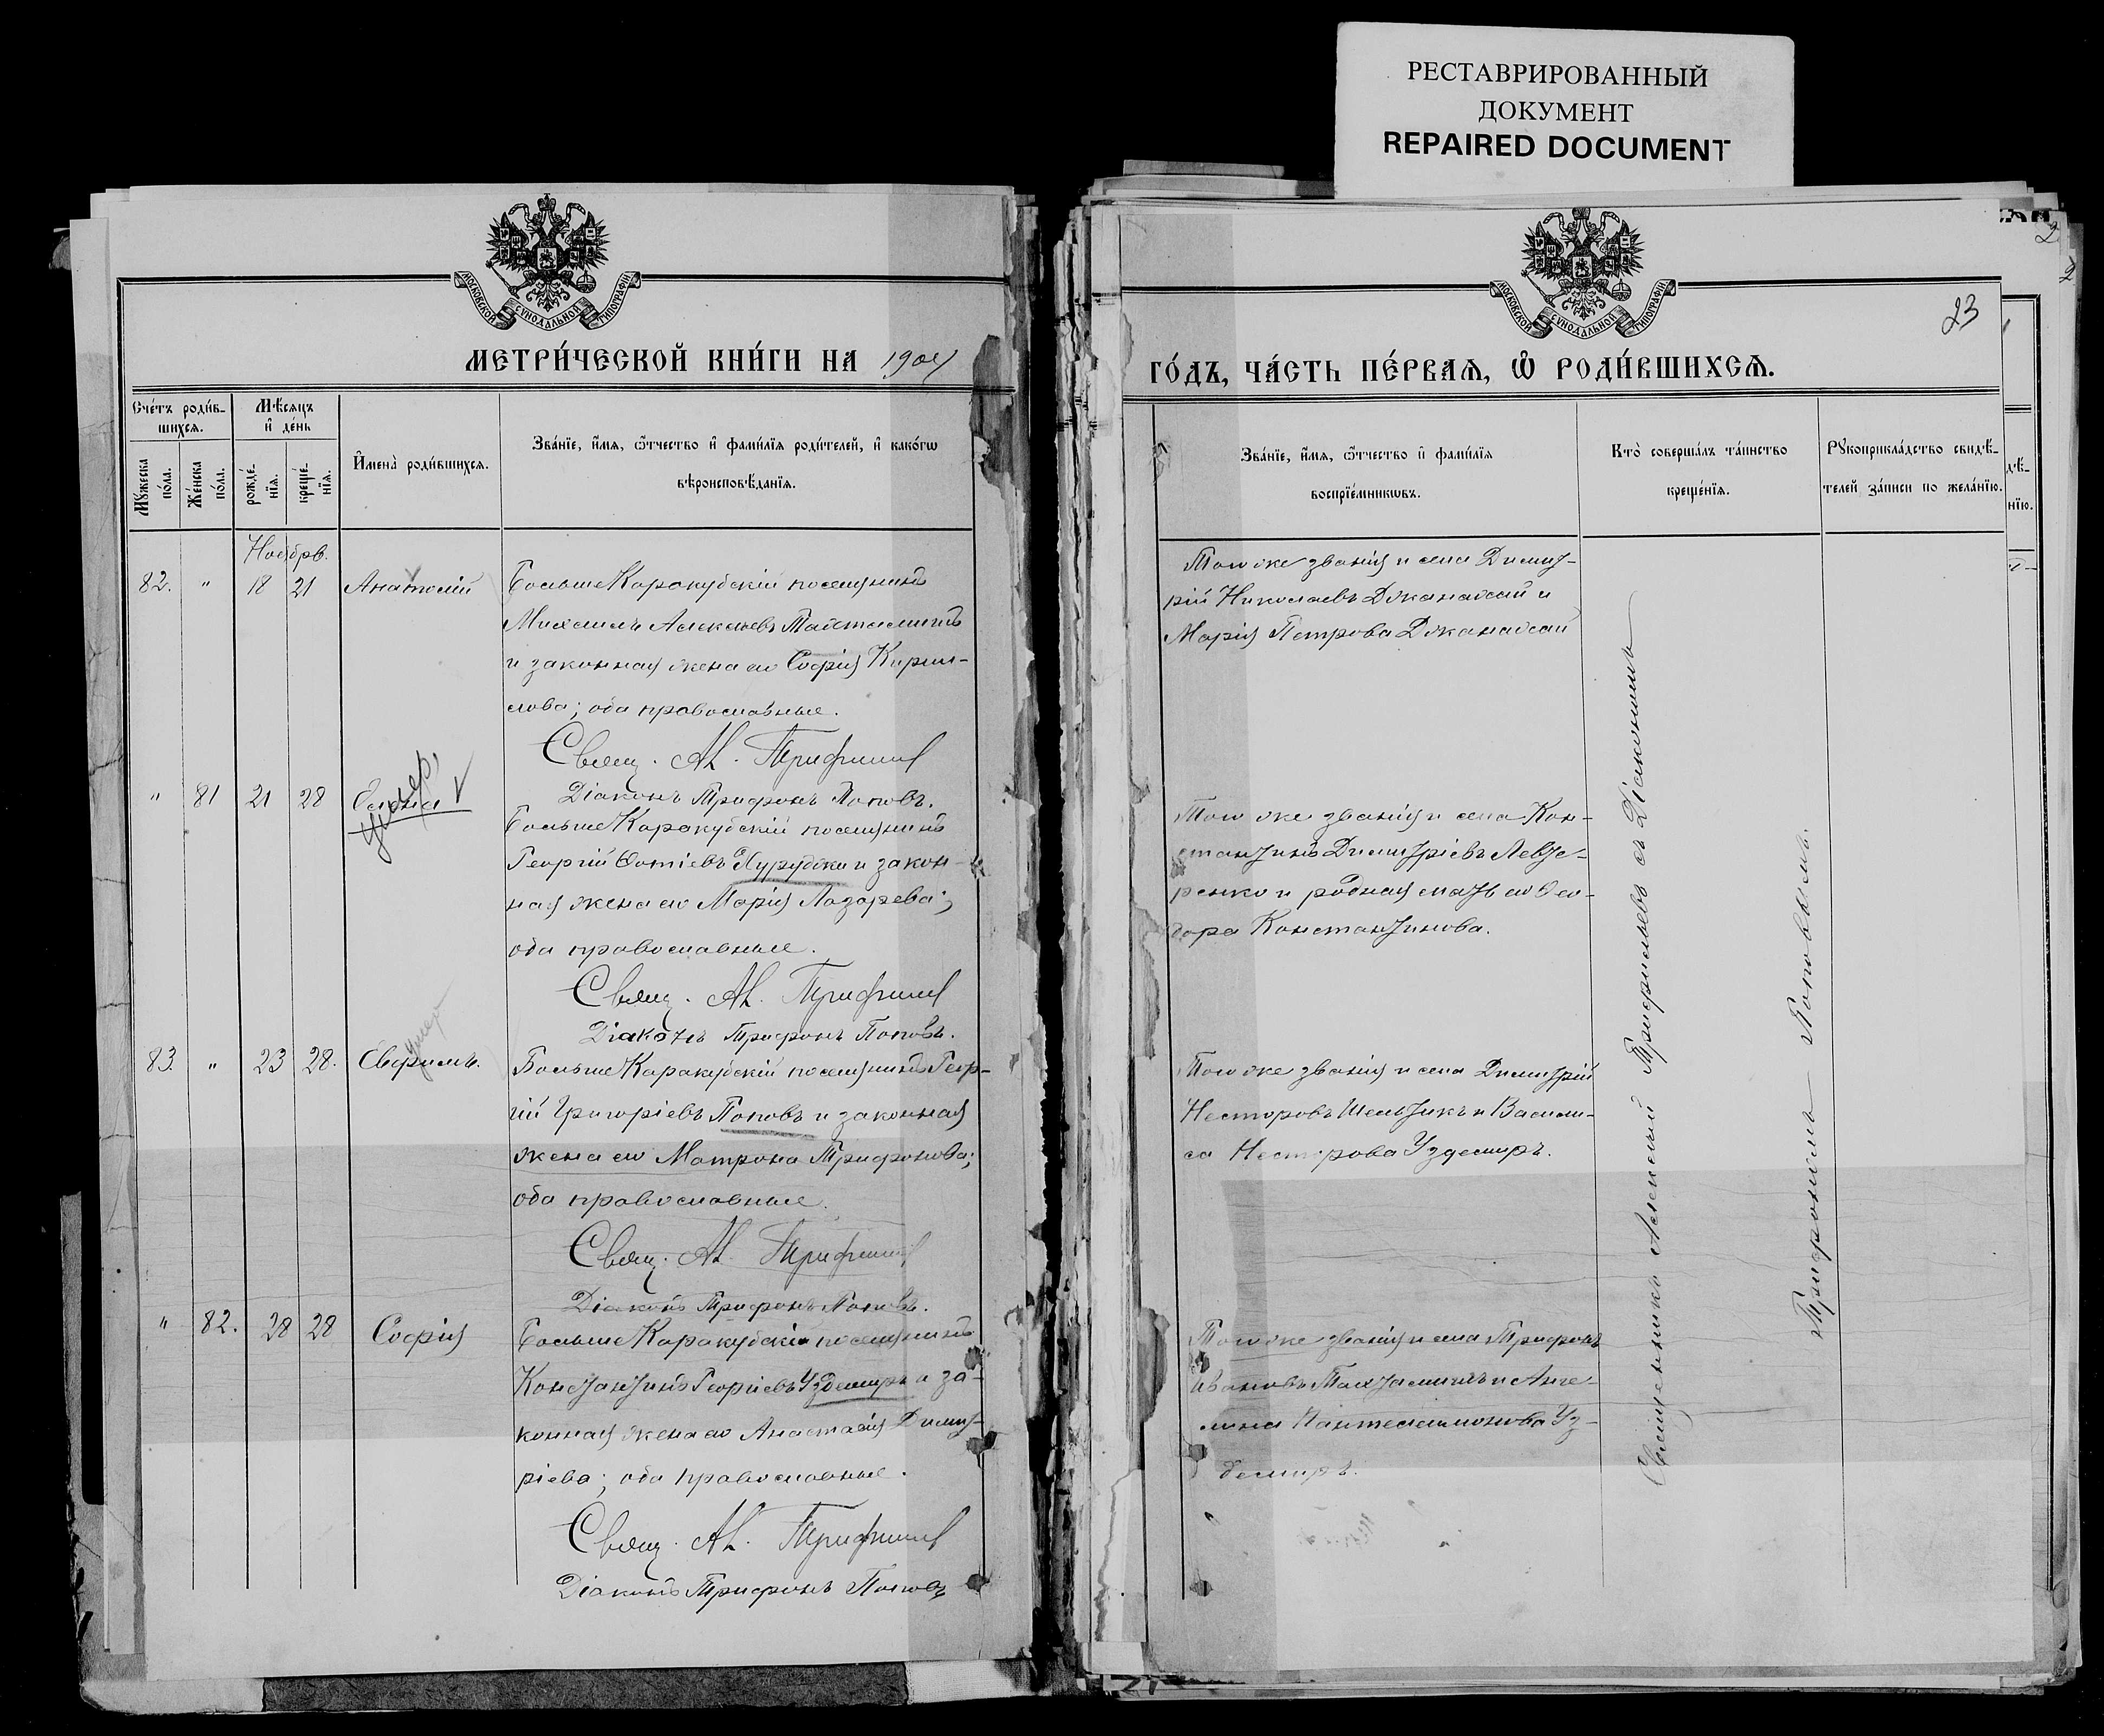 РЕСТАВРИРОВАННЫЙ
ДОКУМЕНТ
REPAIRED DOCUMENT
МОСКОВСКОЙ СѴНОДАЛЬНОЙ ТИПОГРАФІИ
МЕТРИ́ЧЕСКОЙ КНИ́ГИ НА 1904
Сче́тъ роди́в-
шихсѧ.
Мꙋжеска
по́ла.
Же́нска
по́ла.
Мѣ́сѧцъ
и҆ де́нь
рожде́-
нїѧ.
креще́-
нїѧ.
И҆мена̀ роди́вшихсѧ.
Зва́нїе, и҆́мѧ, ѻ҆́тчество и҆ фами́лїѧ роди́телей, и҆ како́гѡ
вѣроисповѣ́данїѧ.
Ноябрь.
82. " 18 21 Анатолій
Больше Каракубскій поселянинъ
Михаилъ Алексѣевъ
и законная жена его Софія Кирил-
лова; оба православные.
Свящ. Ал. Трифильев
Діаконъ Трифонъ Поповъ.
" 81 21 28 Елена
умер.
Больше Каракубскій поселянинъ
Георгій Фотіевъ Хуруджи и закон-
ная жена его Марія Лазарева;
оба православные.
Свящ. Ал. Трифильев
Діаконъ Трифонъ Поповъ.
83. " 23 28. Евфимъ.
умеръ
Больше Каракубскій поселянинъ Геор-
гій Григоріевъ Поповъ и законная
жена его Матрона Трифонова;
оба православные.
Свящ. Ал. Трифильев
Діаконъ Трифонъ Поповъ.
" 82. 28 28 Софія
Больше Каракубскій поселянинъ
Константинъ Георгіевъ Уздемиръ и за-
конная жена его Анастасія Димит-
ріева; оба православные.
Свящ. Ал. Трифильев
Діаконъ Трифонъ Поповъ
МОСКОВСКОЙ СѴНОДАЛЬНОЙ ТИПОГРАФІИ
23
ГО́ДЪ, ЧА́СТЬ ПЕ́РВАѦ, Ѽ РОДИ́ВШИХСѦ.
Зва́нїе, и҆́мѧ, ѻ҆́тчество и҆ фами́лїѧ
воспрїе́мникѡвъ.
Кто̀ соверша́лъ та́инство
креще́нїѧ.
Рꙋкоприкла́дство свидѣ́-
телей за́писи по жела́нїю.
Того же званія и села Димит-
рій Николаевъ Джанадсай и
Марія Петрова Джанадсай
Того же званія и села Кон-
стантинъ Димитріевъ Левте-
ренко и родная мать его Фео-
дора Константинова.
Того же званія и села Димитрій
Несторовъ Шельтикъ и Васили-
са Несторова Уздемиръ.
Того же званія и села Трифонъ
Ивановъ и Анге-
лина Пантелеимонова Уз-
демиръ.
Священникъ Алексѣй Трифильевъ съ Діакономъ
Трифономъ Поповымъ.